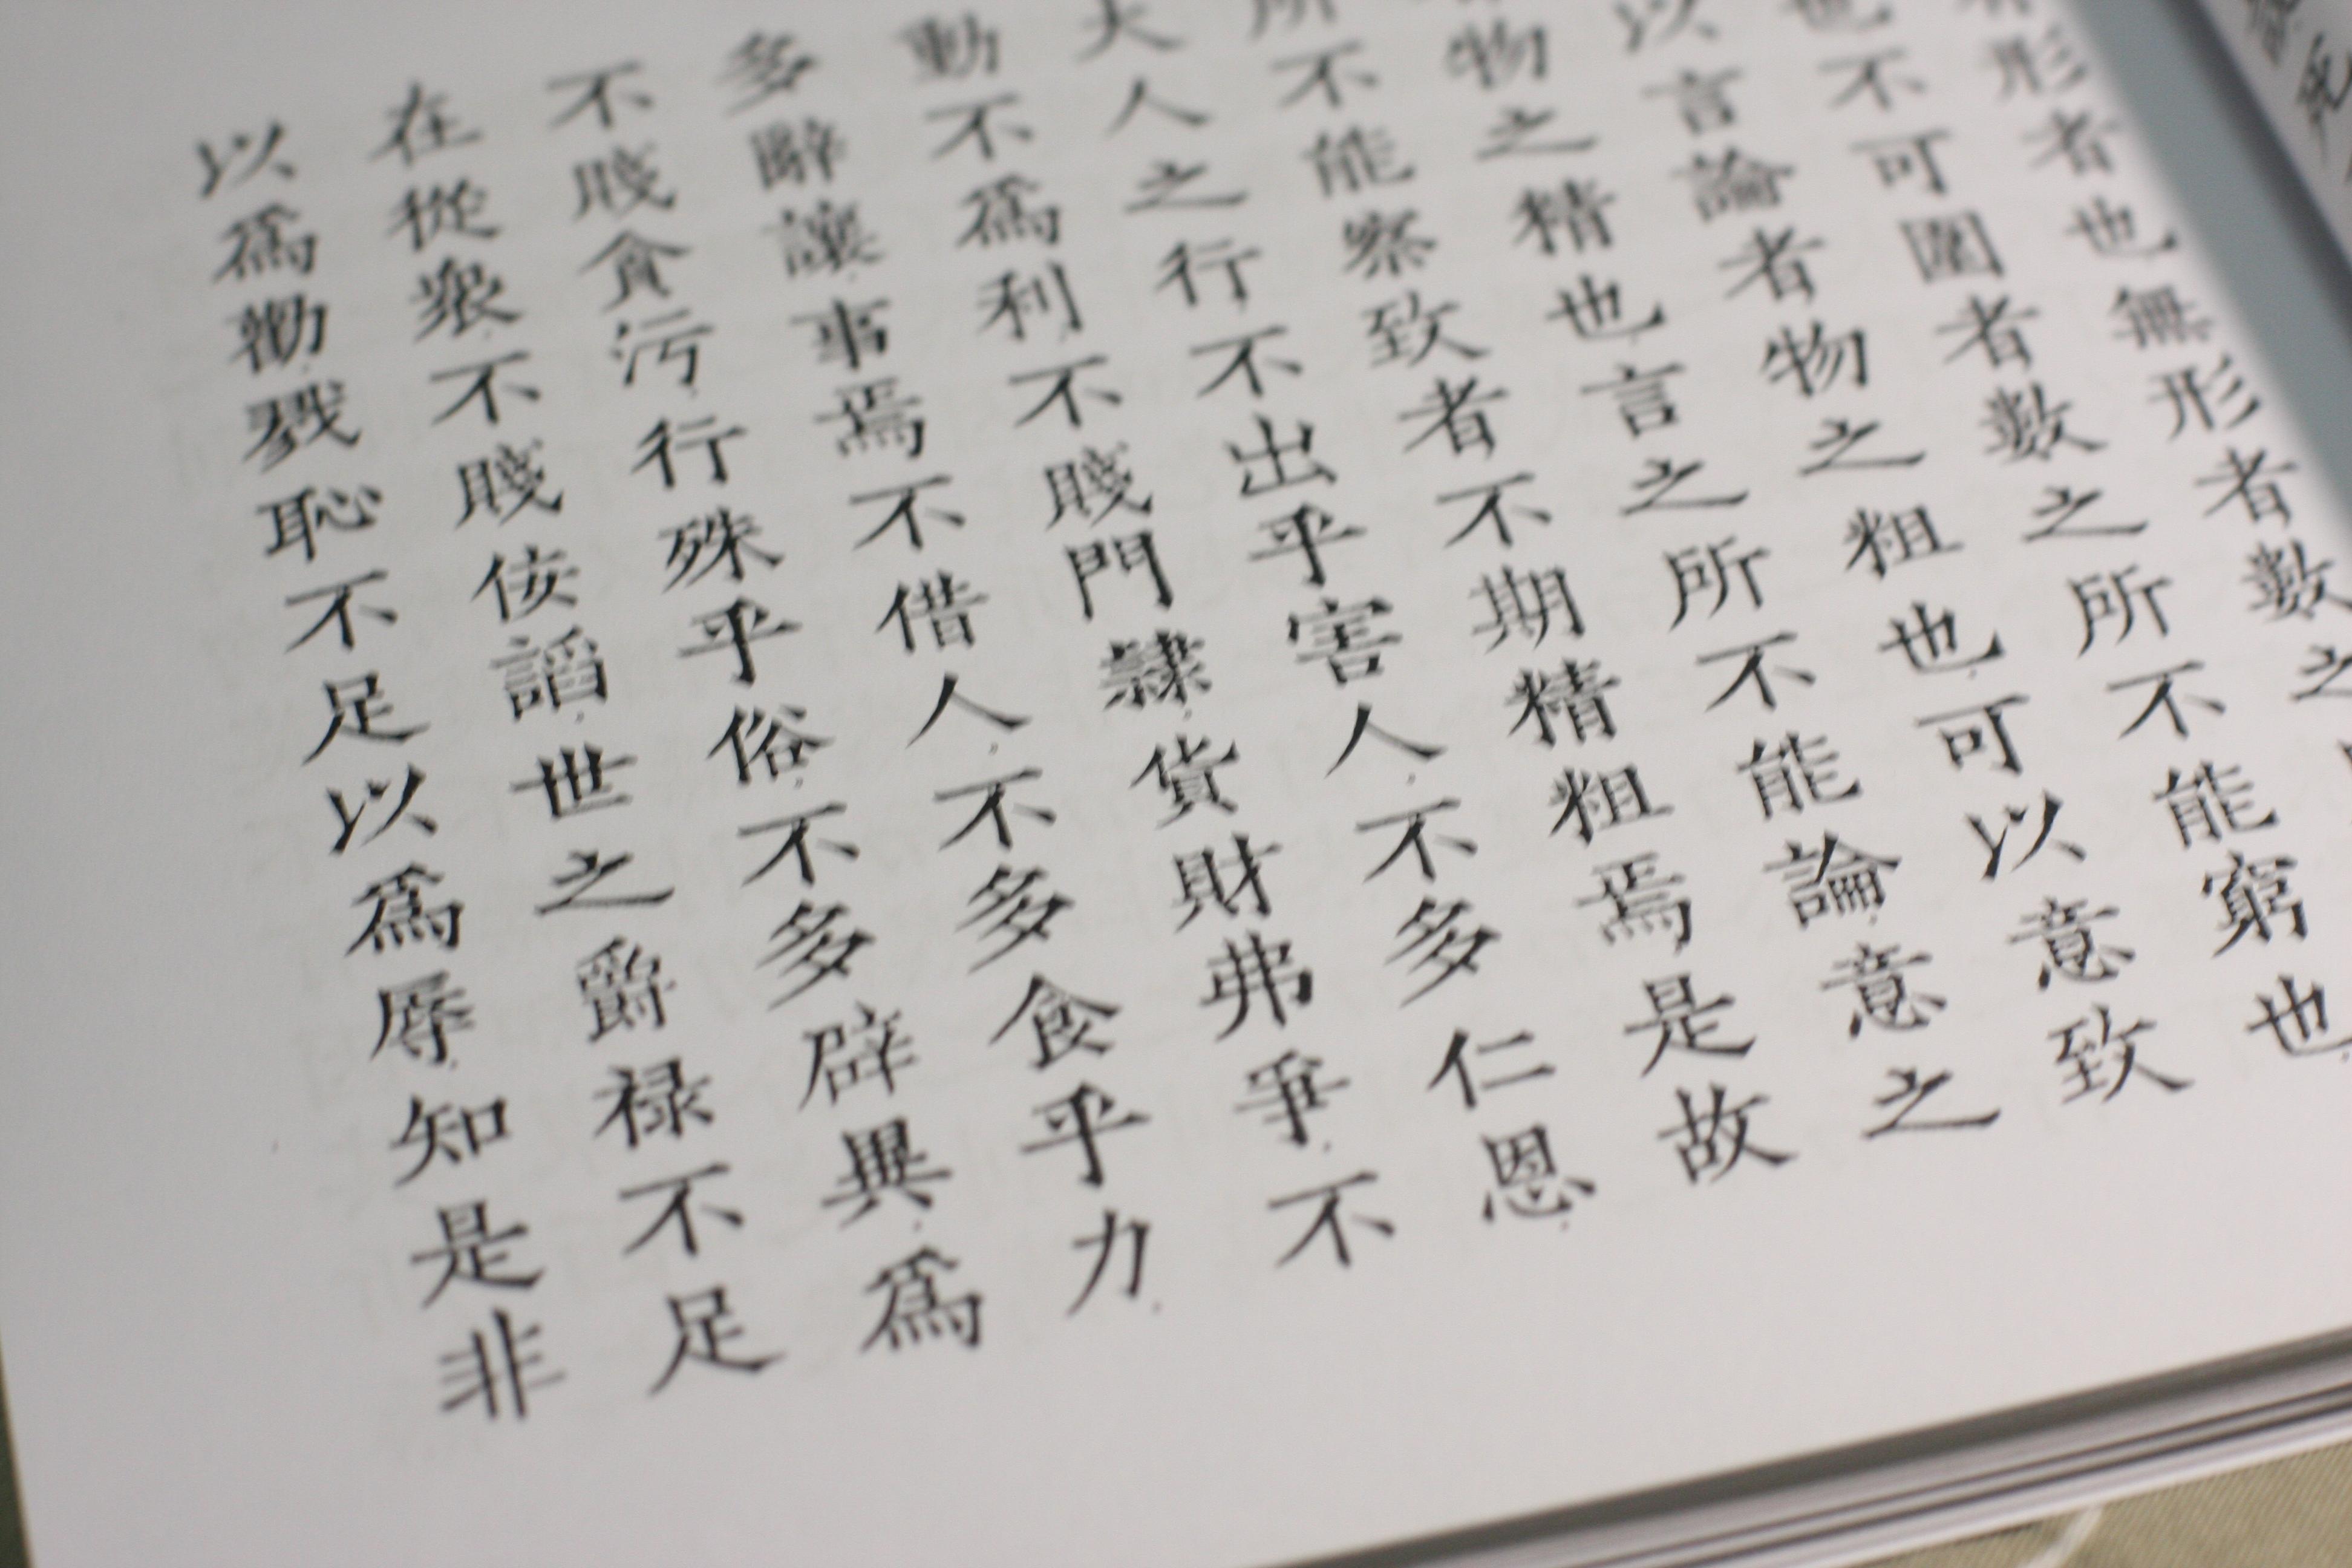 形者也無形者數之
也不可圍者數之所不能窮也
以言論者物之粗也可以意致
物之精也言之所不能論意之
所不能察致者不期精粗焉是故
大人之行不出乎害人不多仁恩
動不爲利不賤門隸貨財弗爭不
多辭讓事焉不借人不多食乎力
不賤貪污行殊乎俗不多辟異爲
在從衆不賤佞謟世之爵禄不足
以爲勸戮恥不足以爲辱知是非